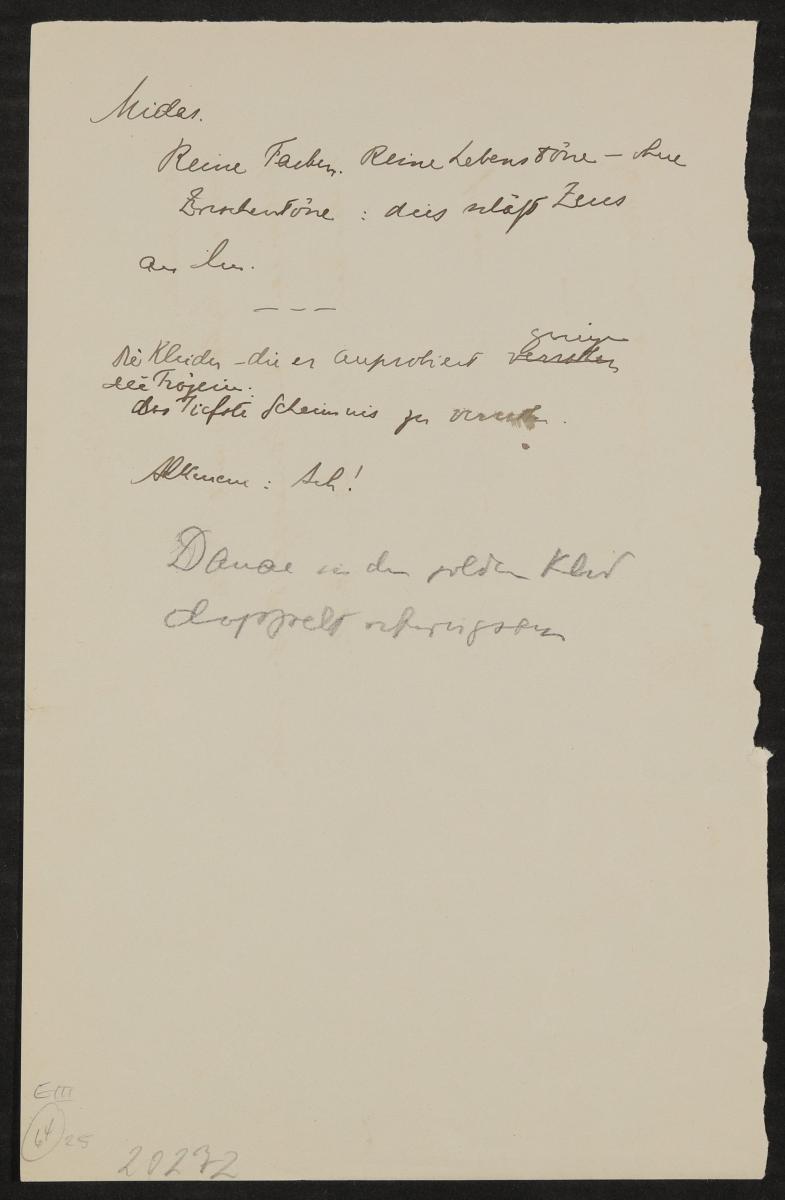 Midas.
Reine Farben. Reine Lebenstöne – ohne
Zwischentöne : dies schläft Zeus
an ihm.
– – –
Die Kleider – die er anprobiert
die Trägerin:
das Tiefste Geheimnis zu
Alkmene : Ach!
Danae in dem golden Kleid
doppelt
E III
64 25
20232